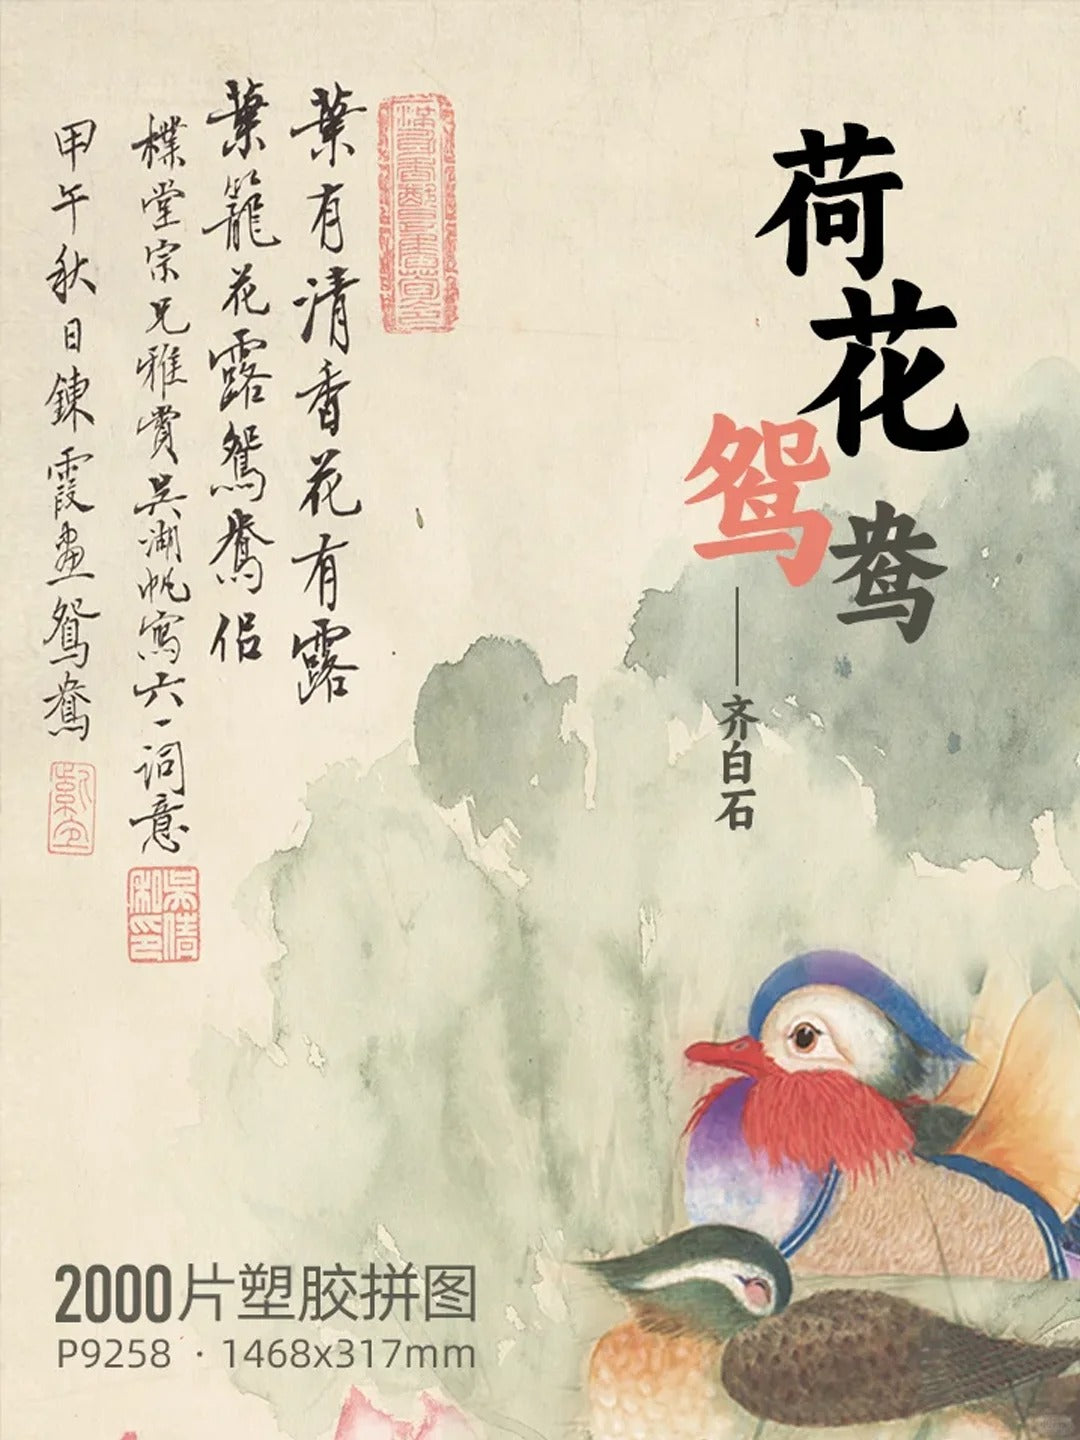 荷花
鸳鸯
——齐白石
葉有清香花有露
葉籠花露鴛鴦侶
樸堂宗兄雅賞吳湖帆寫六一詞意
甲午秋日鍊霞畫鴛鴦
吳倩私印
2000片塑胶拼图
P9258 · 1468x317mm